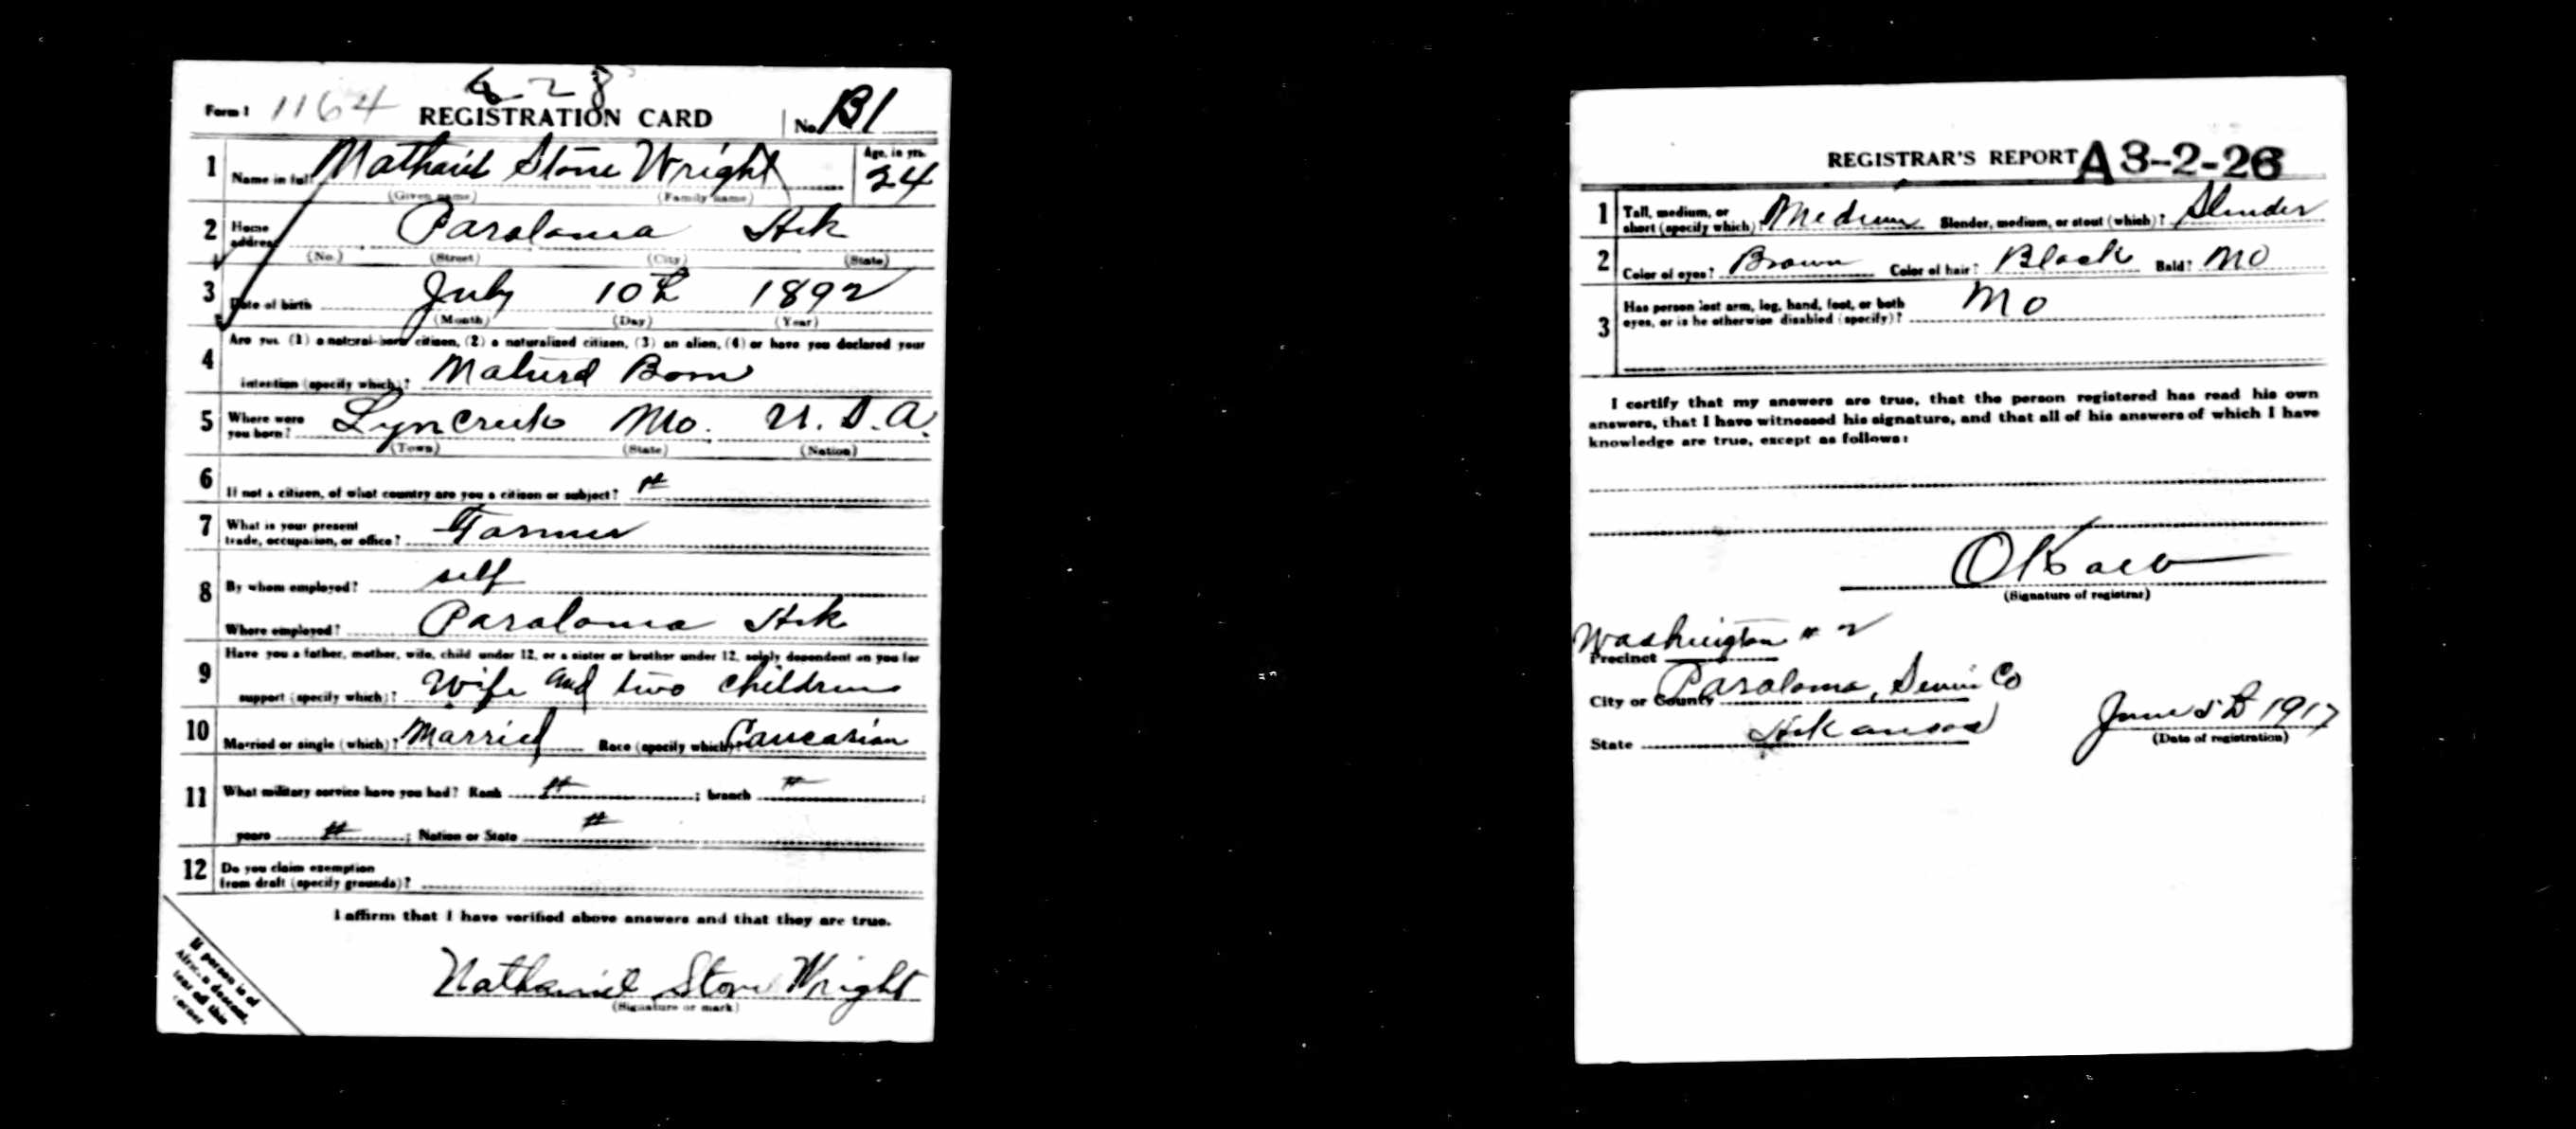 628
Form 1 1164 REGISTRATION CARD No. 131
1 Name in full Nathaniel Stone Wright Age, in yrs. 24
(Given name) (Family name)
2 Home address Paraloma Ark
(No.) (Street) (City) (State)
3 Date of birth July 10th 1892
(Month) (Day) (Year)
4 Are you (1) a natural-born citizen, (2) a naturalized citizen, (3) an alien, (4) or have you declared your
intention (specify which)? Natural Born
5 Where were you born? Lyncreek Mo. U.S.A.
(Town) (State) (Nation)
6 If not a citizen, of what country are you a citizen or subject?
7 What is your present trade, occupation, or office? Farmer
8 By whom employed? self
Where employed? Paraloma Ark
9 Have you a father, mother, wife, child under 12, or a sister or brother under 12, solely dependent on you for
support (specify which)? Wife and two children
10 Married or single (which)? Married Race (specify which)? Caucasian
11 What military service have you had? Rank ; branch ;
years ; Nation or State
12 Do you claim exemption
from draft (specify grounds)?
I affirm that I have verified above answers and that they are true.
Nathaniel Stone Wright
(Signature or mark)
If person is of
African descent,
tear off this
corner
REGISTRAR'S REPORT A 3-2-26
1 Tall, medium, or short (specify which)? Medium Slender, medium, or stout (which)? Slender
2 Color of eyes? Brown Color of hair? Black Bald? No
3 Has person lost arm, leg, hand, foot, or both
eyes, or is he otherwise disabled (specify)? No
I certify that my answers are true, that the person registered has read his own
answers, that I have witnessed his signature, and that all of his answers of which I have
knowledge are true, except as follows:
(Signature of registrar)
Precinct Washington # 2
City or County Paraloma, Sevier Co
State Arkansas June 5th 1917
(Date of registration)